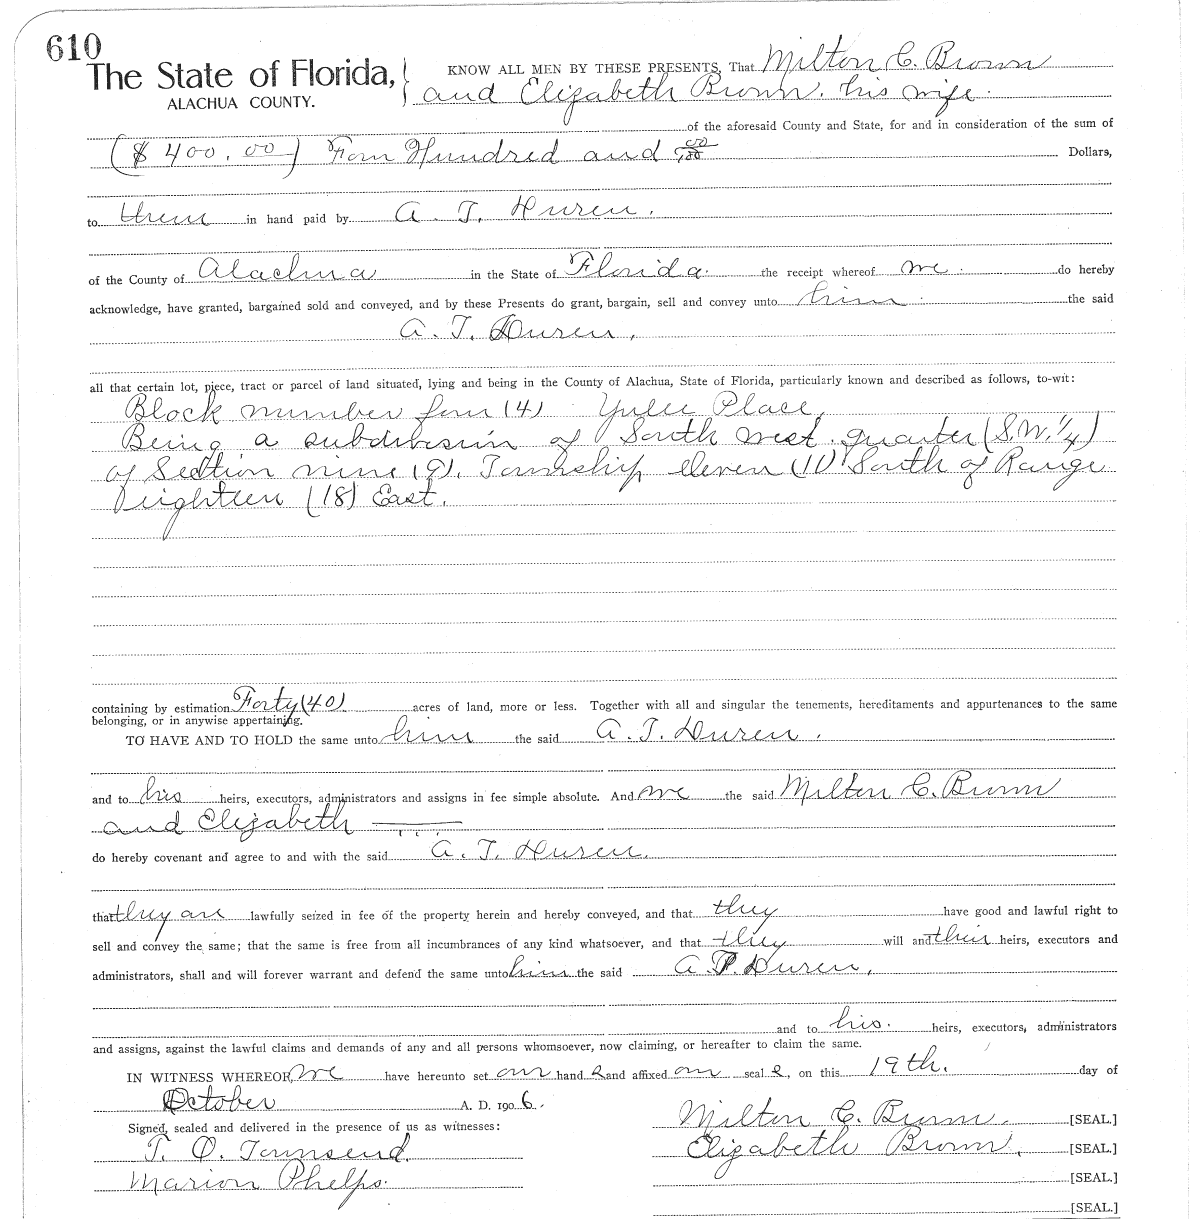 610
The State of Florida, KNOW ALL MEN BY THESE PRESENTS, That Milton C. Brown
ALACHUA COUNTY. and Elizabeth Brown, his wife.
of the aforesaid County and State, for and in consideration of the sum of
($ 400.00) Four Hundred and 00/100 Dollars,
to them in hand paid by A. T. Duren.
of the County of Alachua in the State of Florida. the receipt whereof we do hereby
acknowledge, have granted, bargained sold and conveyed, and by these Presents do grant, bargain, sell and convey unto him the said
A. T. Duren,
all that certain lot, piece, tract or parcel of land situated, lying and being in the County of Alachua, State of Florida, particularly known and described as follows, to-wit:
Block number four (4) Yulee Place,
Being a subdivision of South west quarter (S.W. 1/4)
of Section nine (9). Township eleven (11) South of Range
eighteen (18) East.
containing by estimation Forty (40) acres of land, more or less. Together with all and singular the tenements, hereditaments and appurtenances to the same
belonging, or in anywise appertaining.
TO HAVE AND TO HOLD the same unto him the said A. T. Duren.
and to his heirs, executors, administrators and assigns in fee simple absolute. And we the said Milton C. Brown
and Elizabeth
do hereby covenant and agree to and with the said A. T. Duren.
that they are lawfully seized in fee of the property herein and hereby conveyed, and that they have good and lawful right to
sell and convey the same; that the same is free from all incumbrances of any kind whatsoever, and that they will and their heirs, executors and
administrators, shall and will forever warrant and defend the same unto him the said A. T. Duren,
and to his heirs, executors, administrators
and assigns, against the lawful claims and demands of any and all persons whomsoever, now claiming, or hereafter to claim the same.
IN WITNESS WHEREOF, we have hereunto set our hand s and affixed our seal s, on this 19th. day of
October A. D. 1906.
Milton C. Brown. [SEAL.]
Signed, sealed and delivered in the presence of us as witnesses:
Elizabeth Brown. [SEAL.]
T. O. Townsend.
[SEAL.]
Marion Phelps.
[SEAL.]